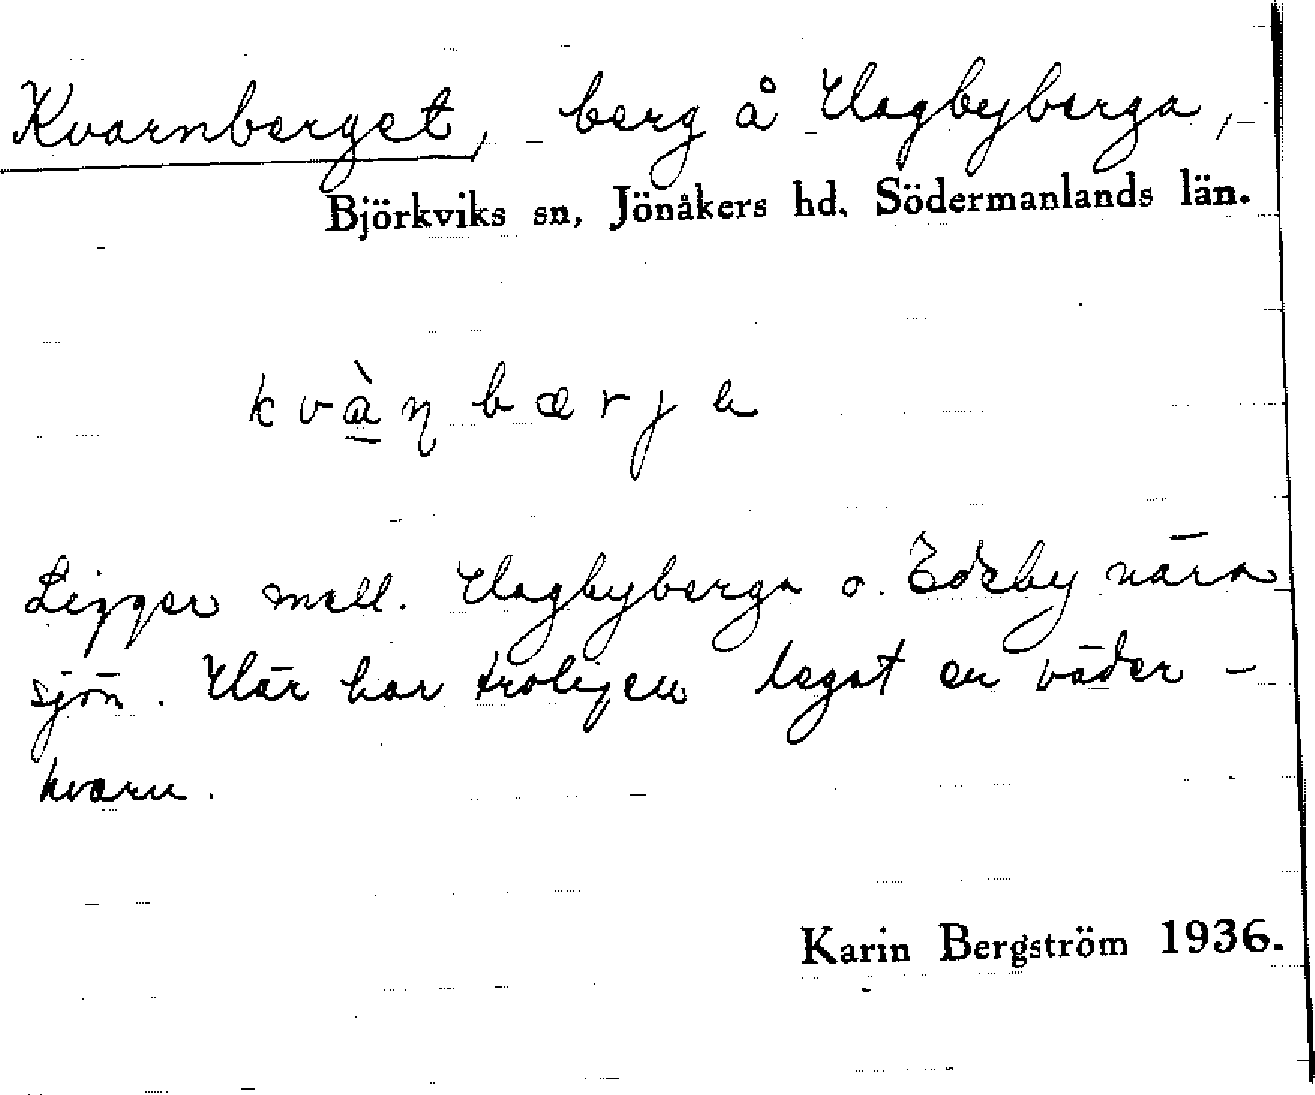 Kvarnberget, berg å Hagbyberga,
Björkviks sn, Jönåkers hd. Södermanlands län.
kvàɳbærja
Ligger mell. Hagbyberga o. Edeby nära
sjön. Här har troligen legat en väder-
kvarn.
Karin Bergström 1936.